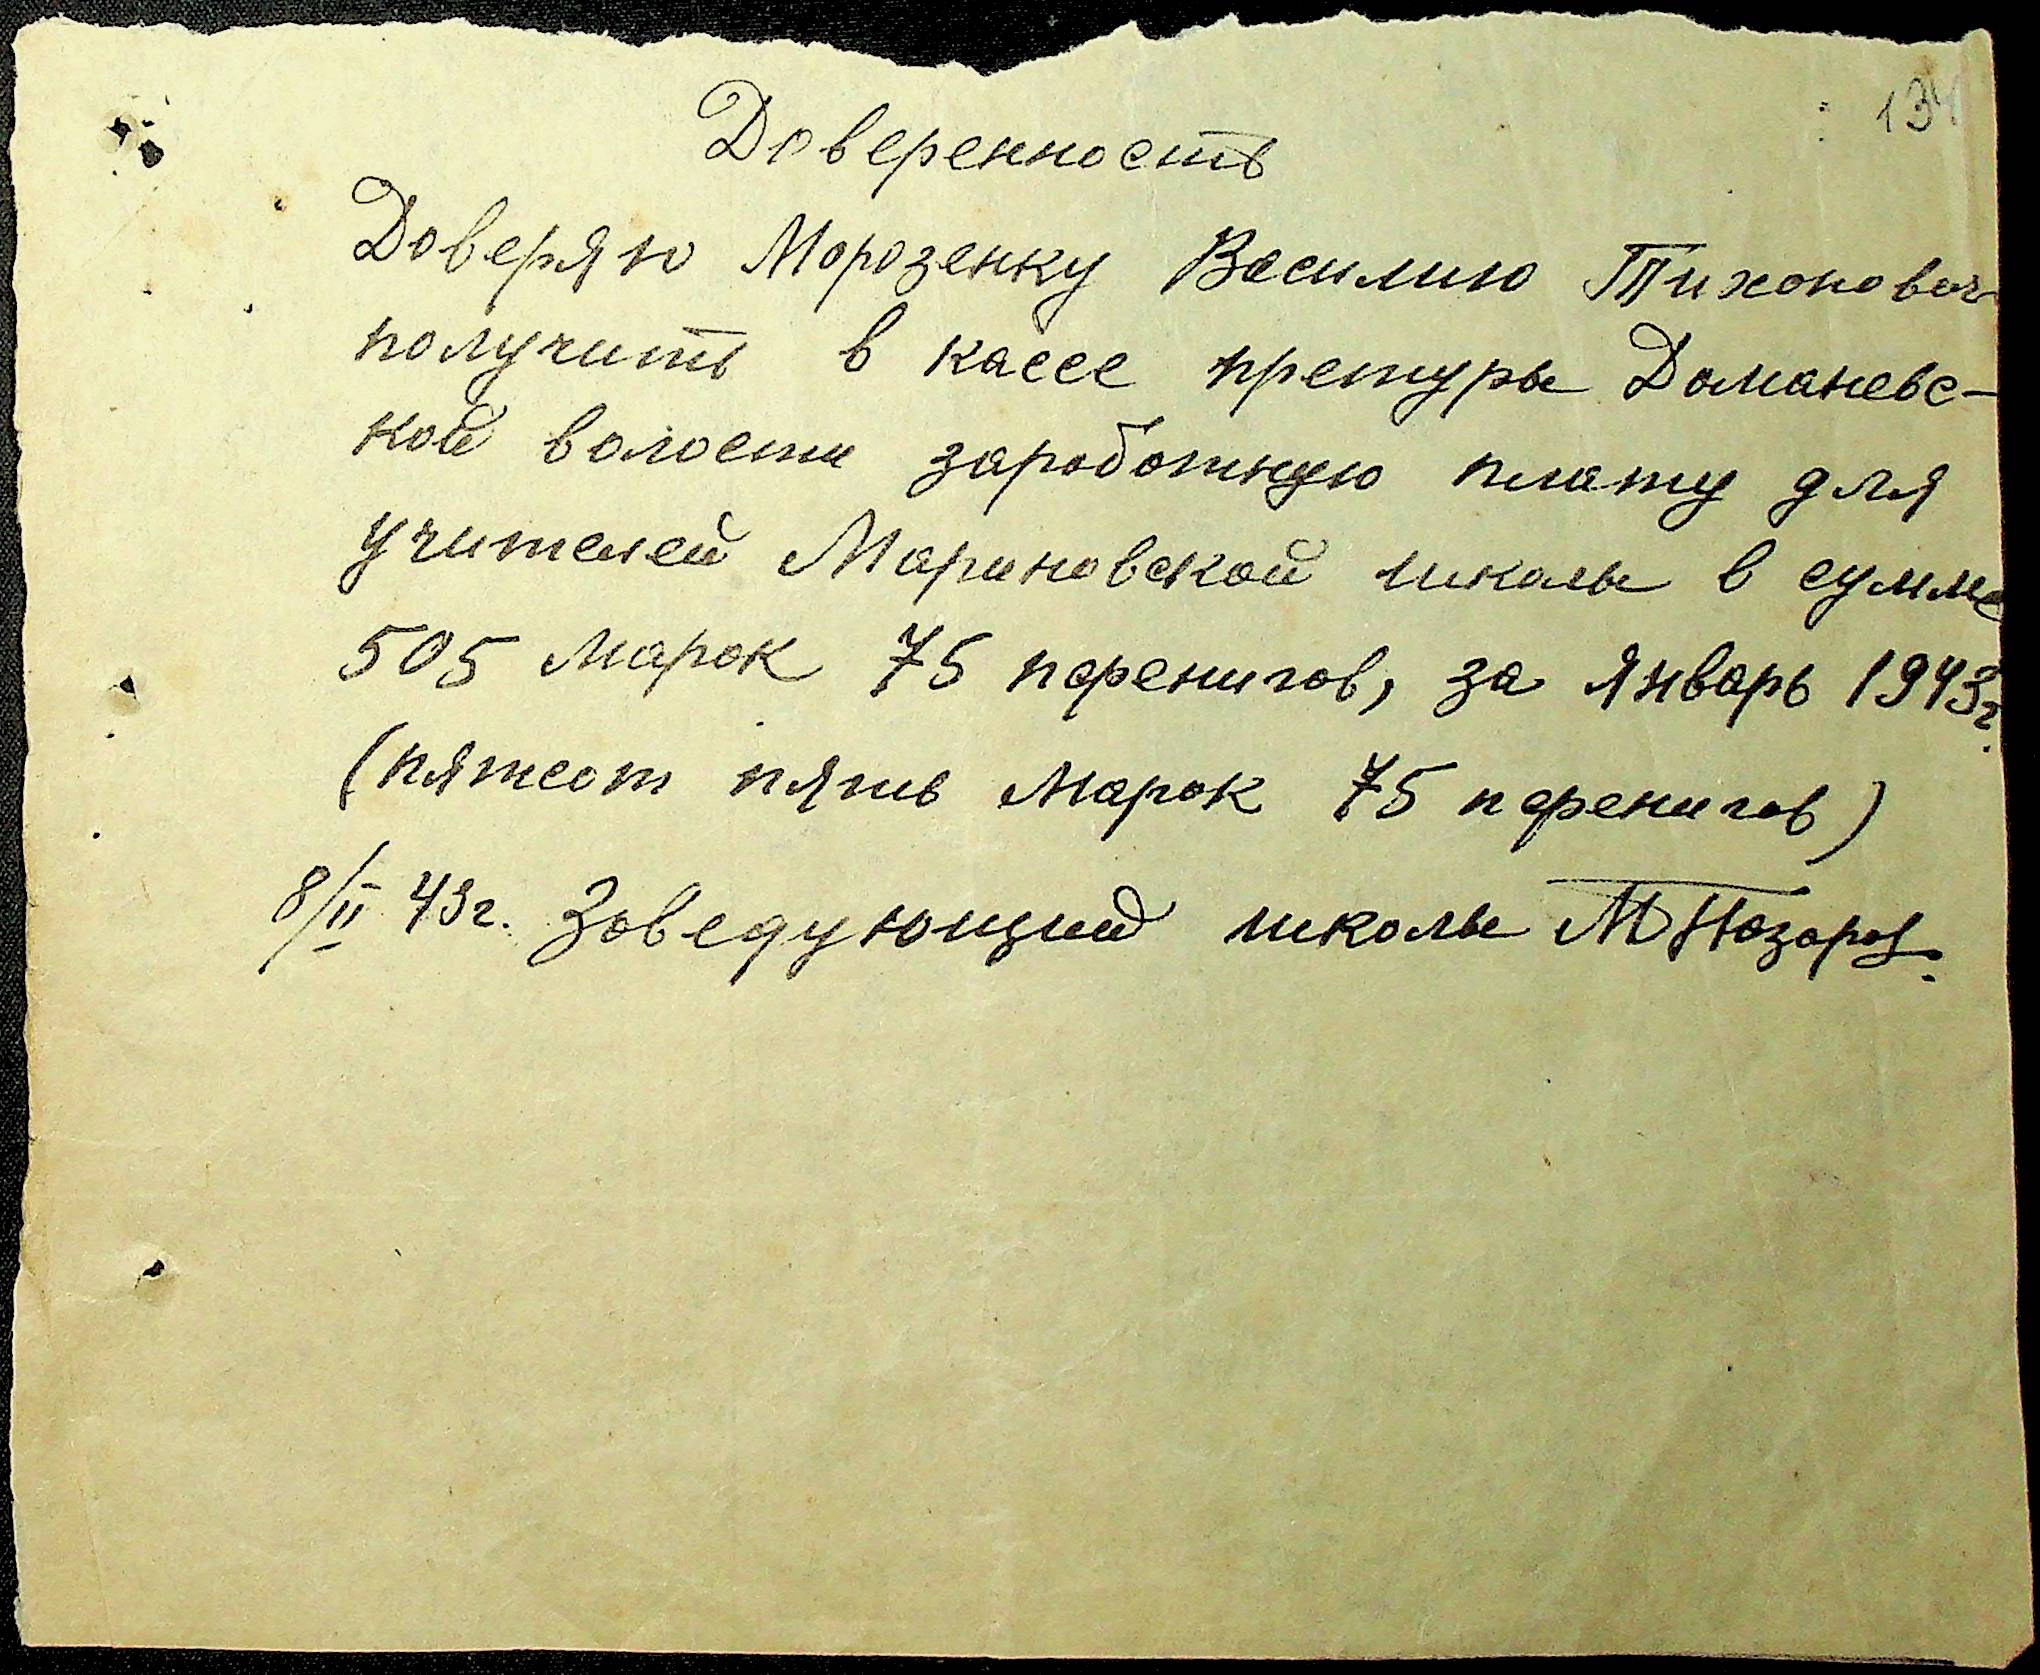 134
Доверенность
Доверяю Морозенку Василию Тихонович
получить в кассе претуры Доманевс-
кой волости заработную плату для
учителей Мариновской школы в сумме
505 марок 75 пфенигов, за январь 1943г.
(пятсот пять марок 75 пфенигов)
8/II 43г. Заведующий школы М Назаров.